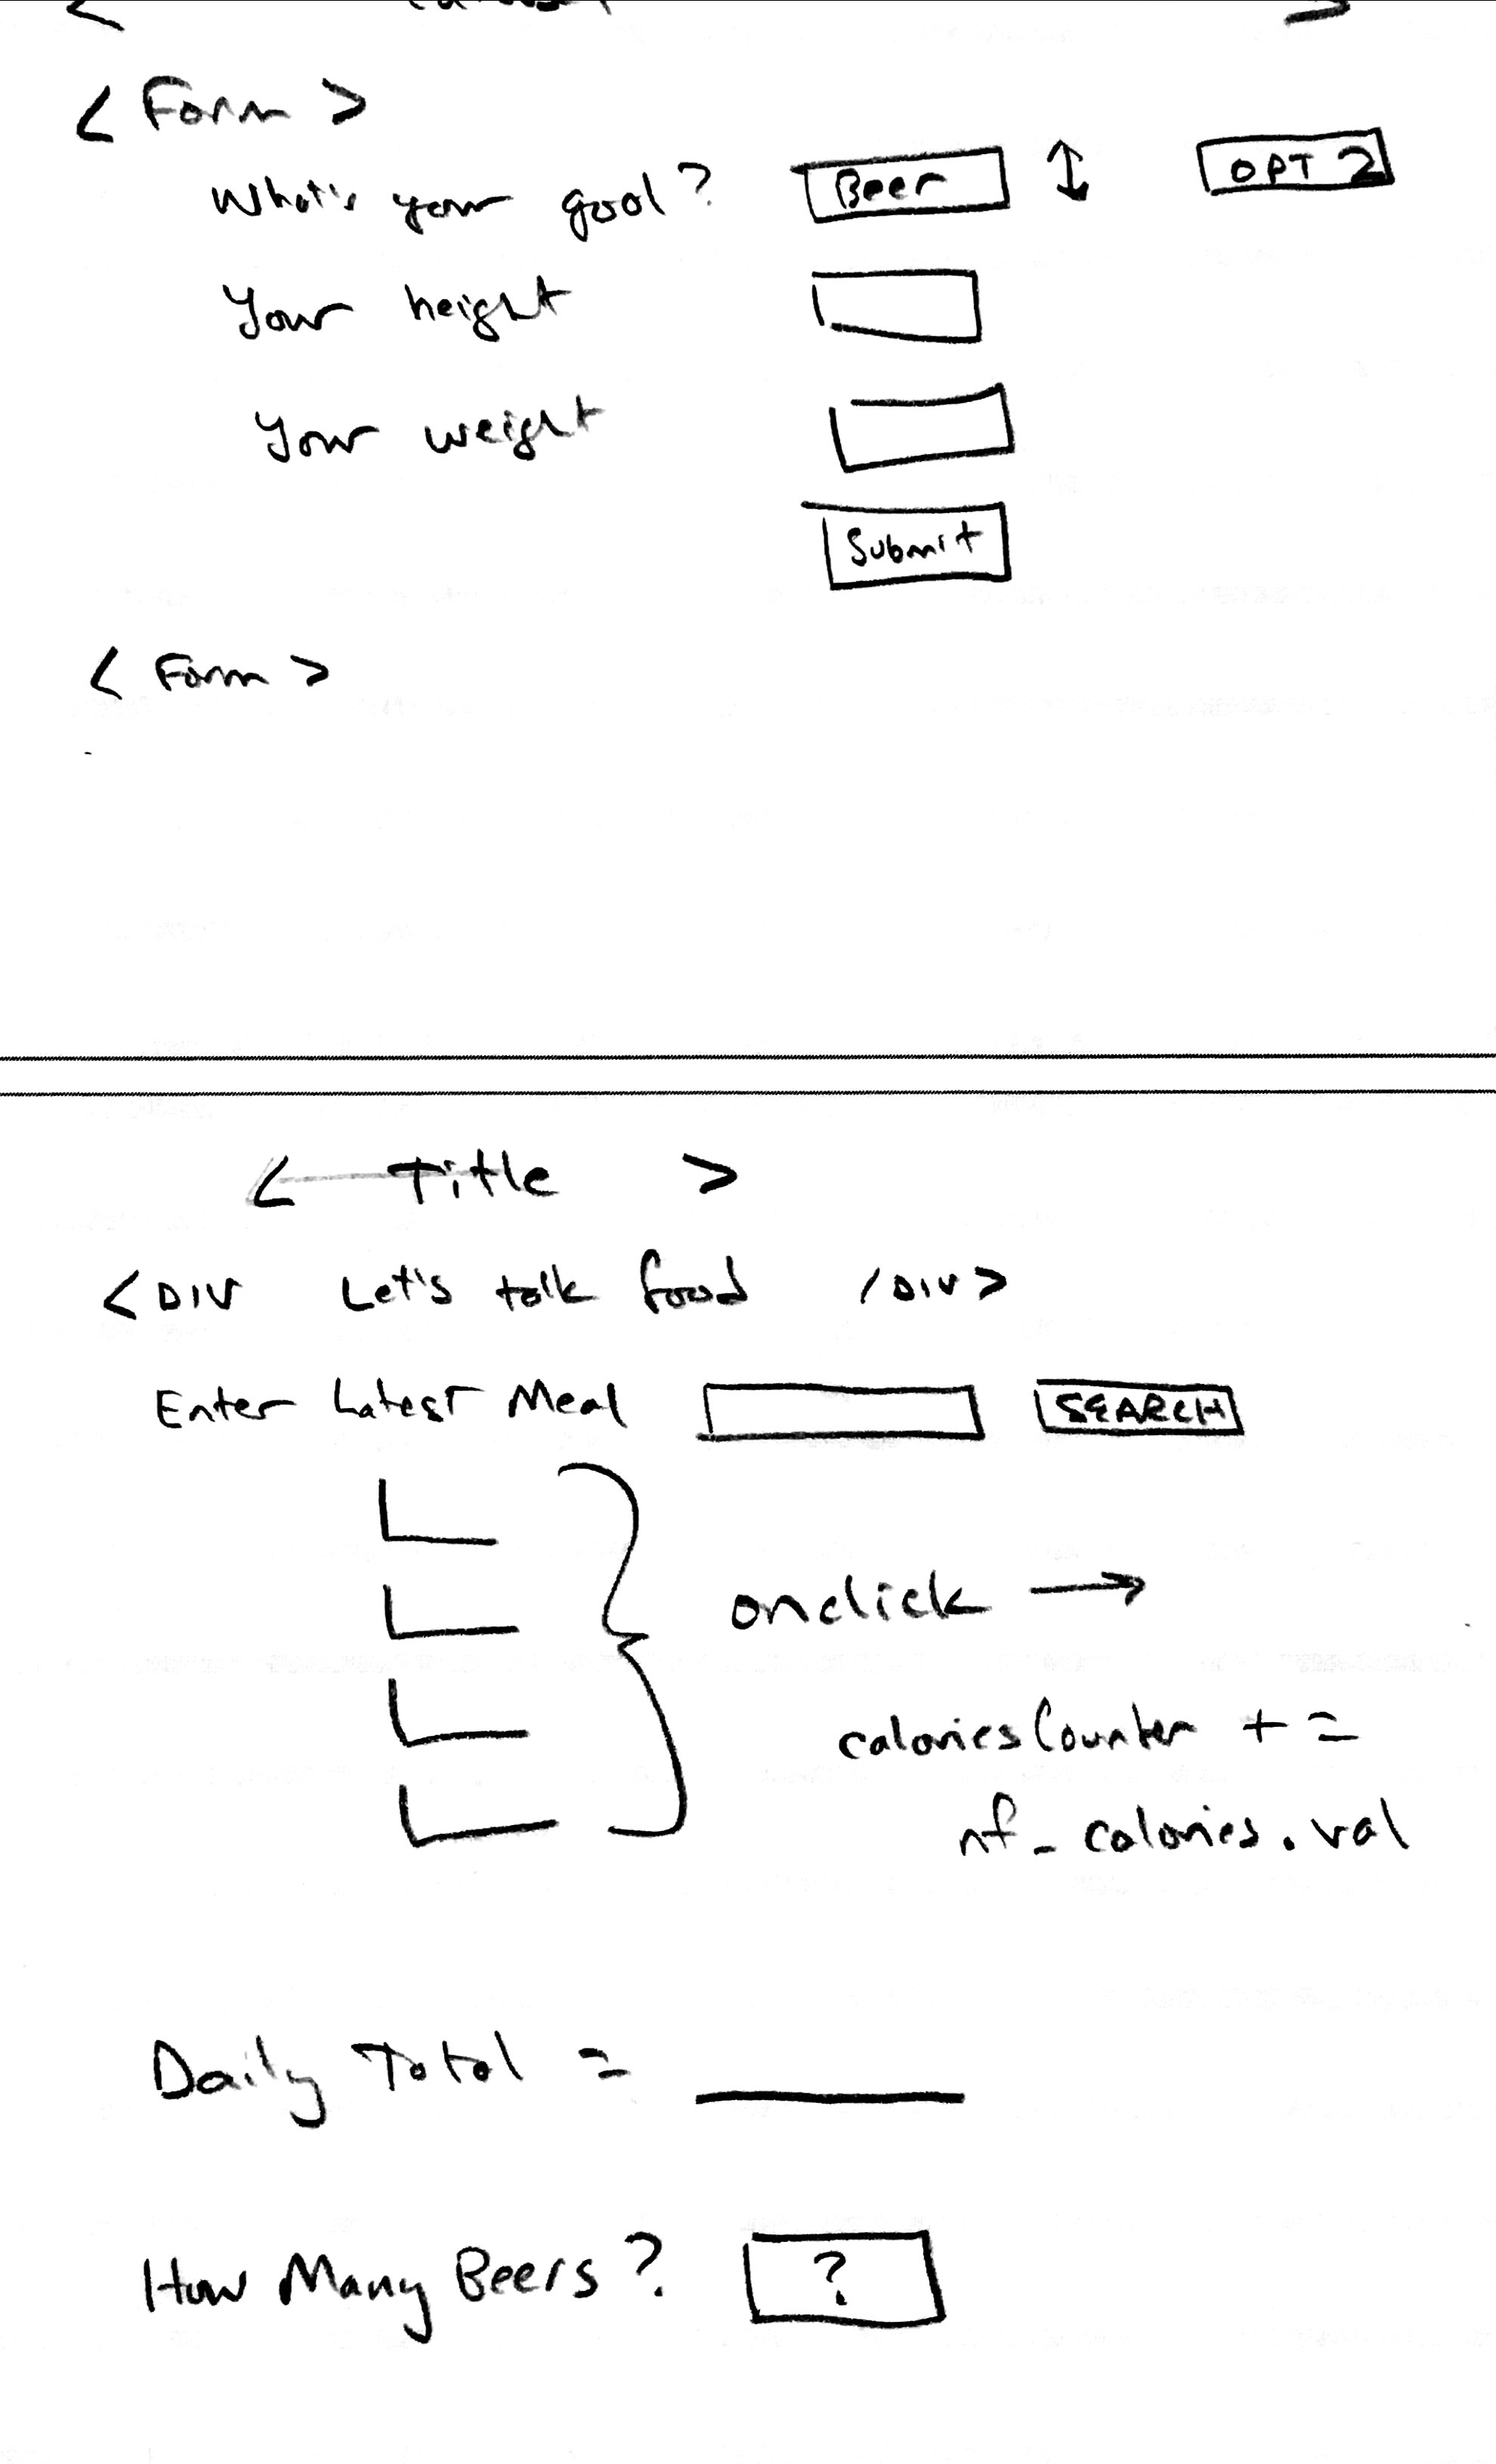 < Form >
What's your goal? Beer OPT 2
Your height
Your weight
Submit
< Form >
< Title >
<DIV Let's talk food /DIV>
Enter Latest Meal SEARCH
onclick →
caloriesCounter + =
nf_calories.val
Daily Total =
How Many Beers? ?